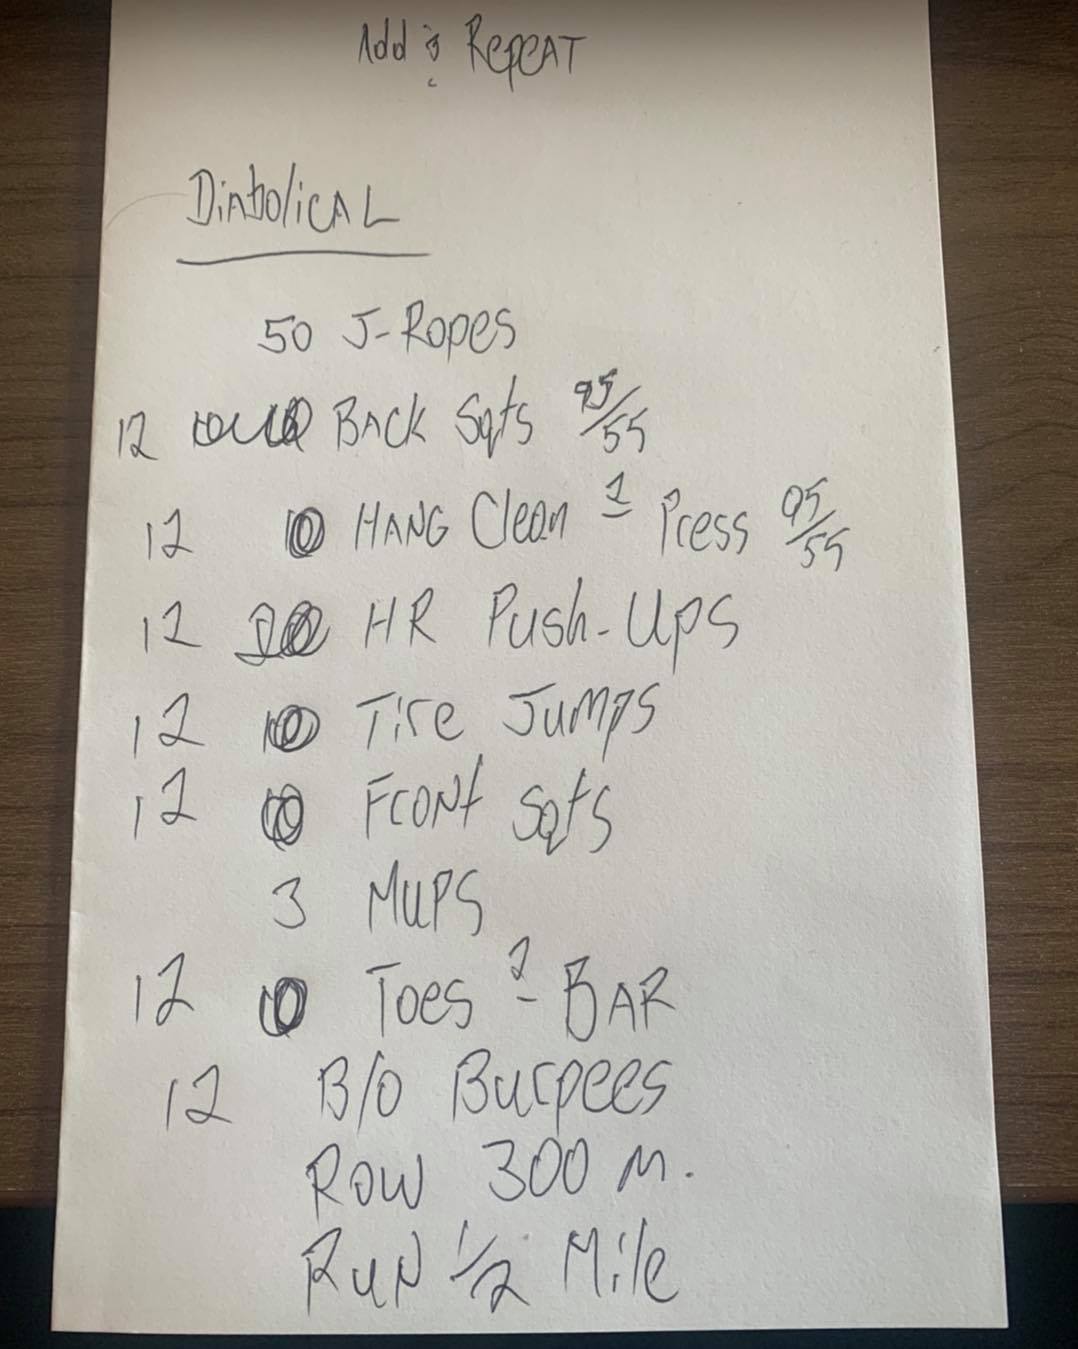 Add & Repeat
Diabolical
50 J-Ropes
12 Back Sqts 95/55
12 Hang Clean 2 Press 95/55
12 HR Push-Ups
12 Tire Jumps
12 Front Sqts
3 Mups
12 Toes 2 Bar
12 B/O Burpees
Row 300 m.
Run 1/2 Mile